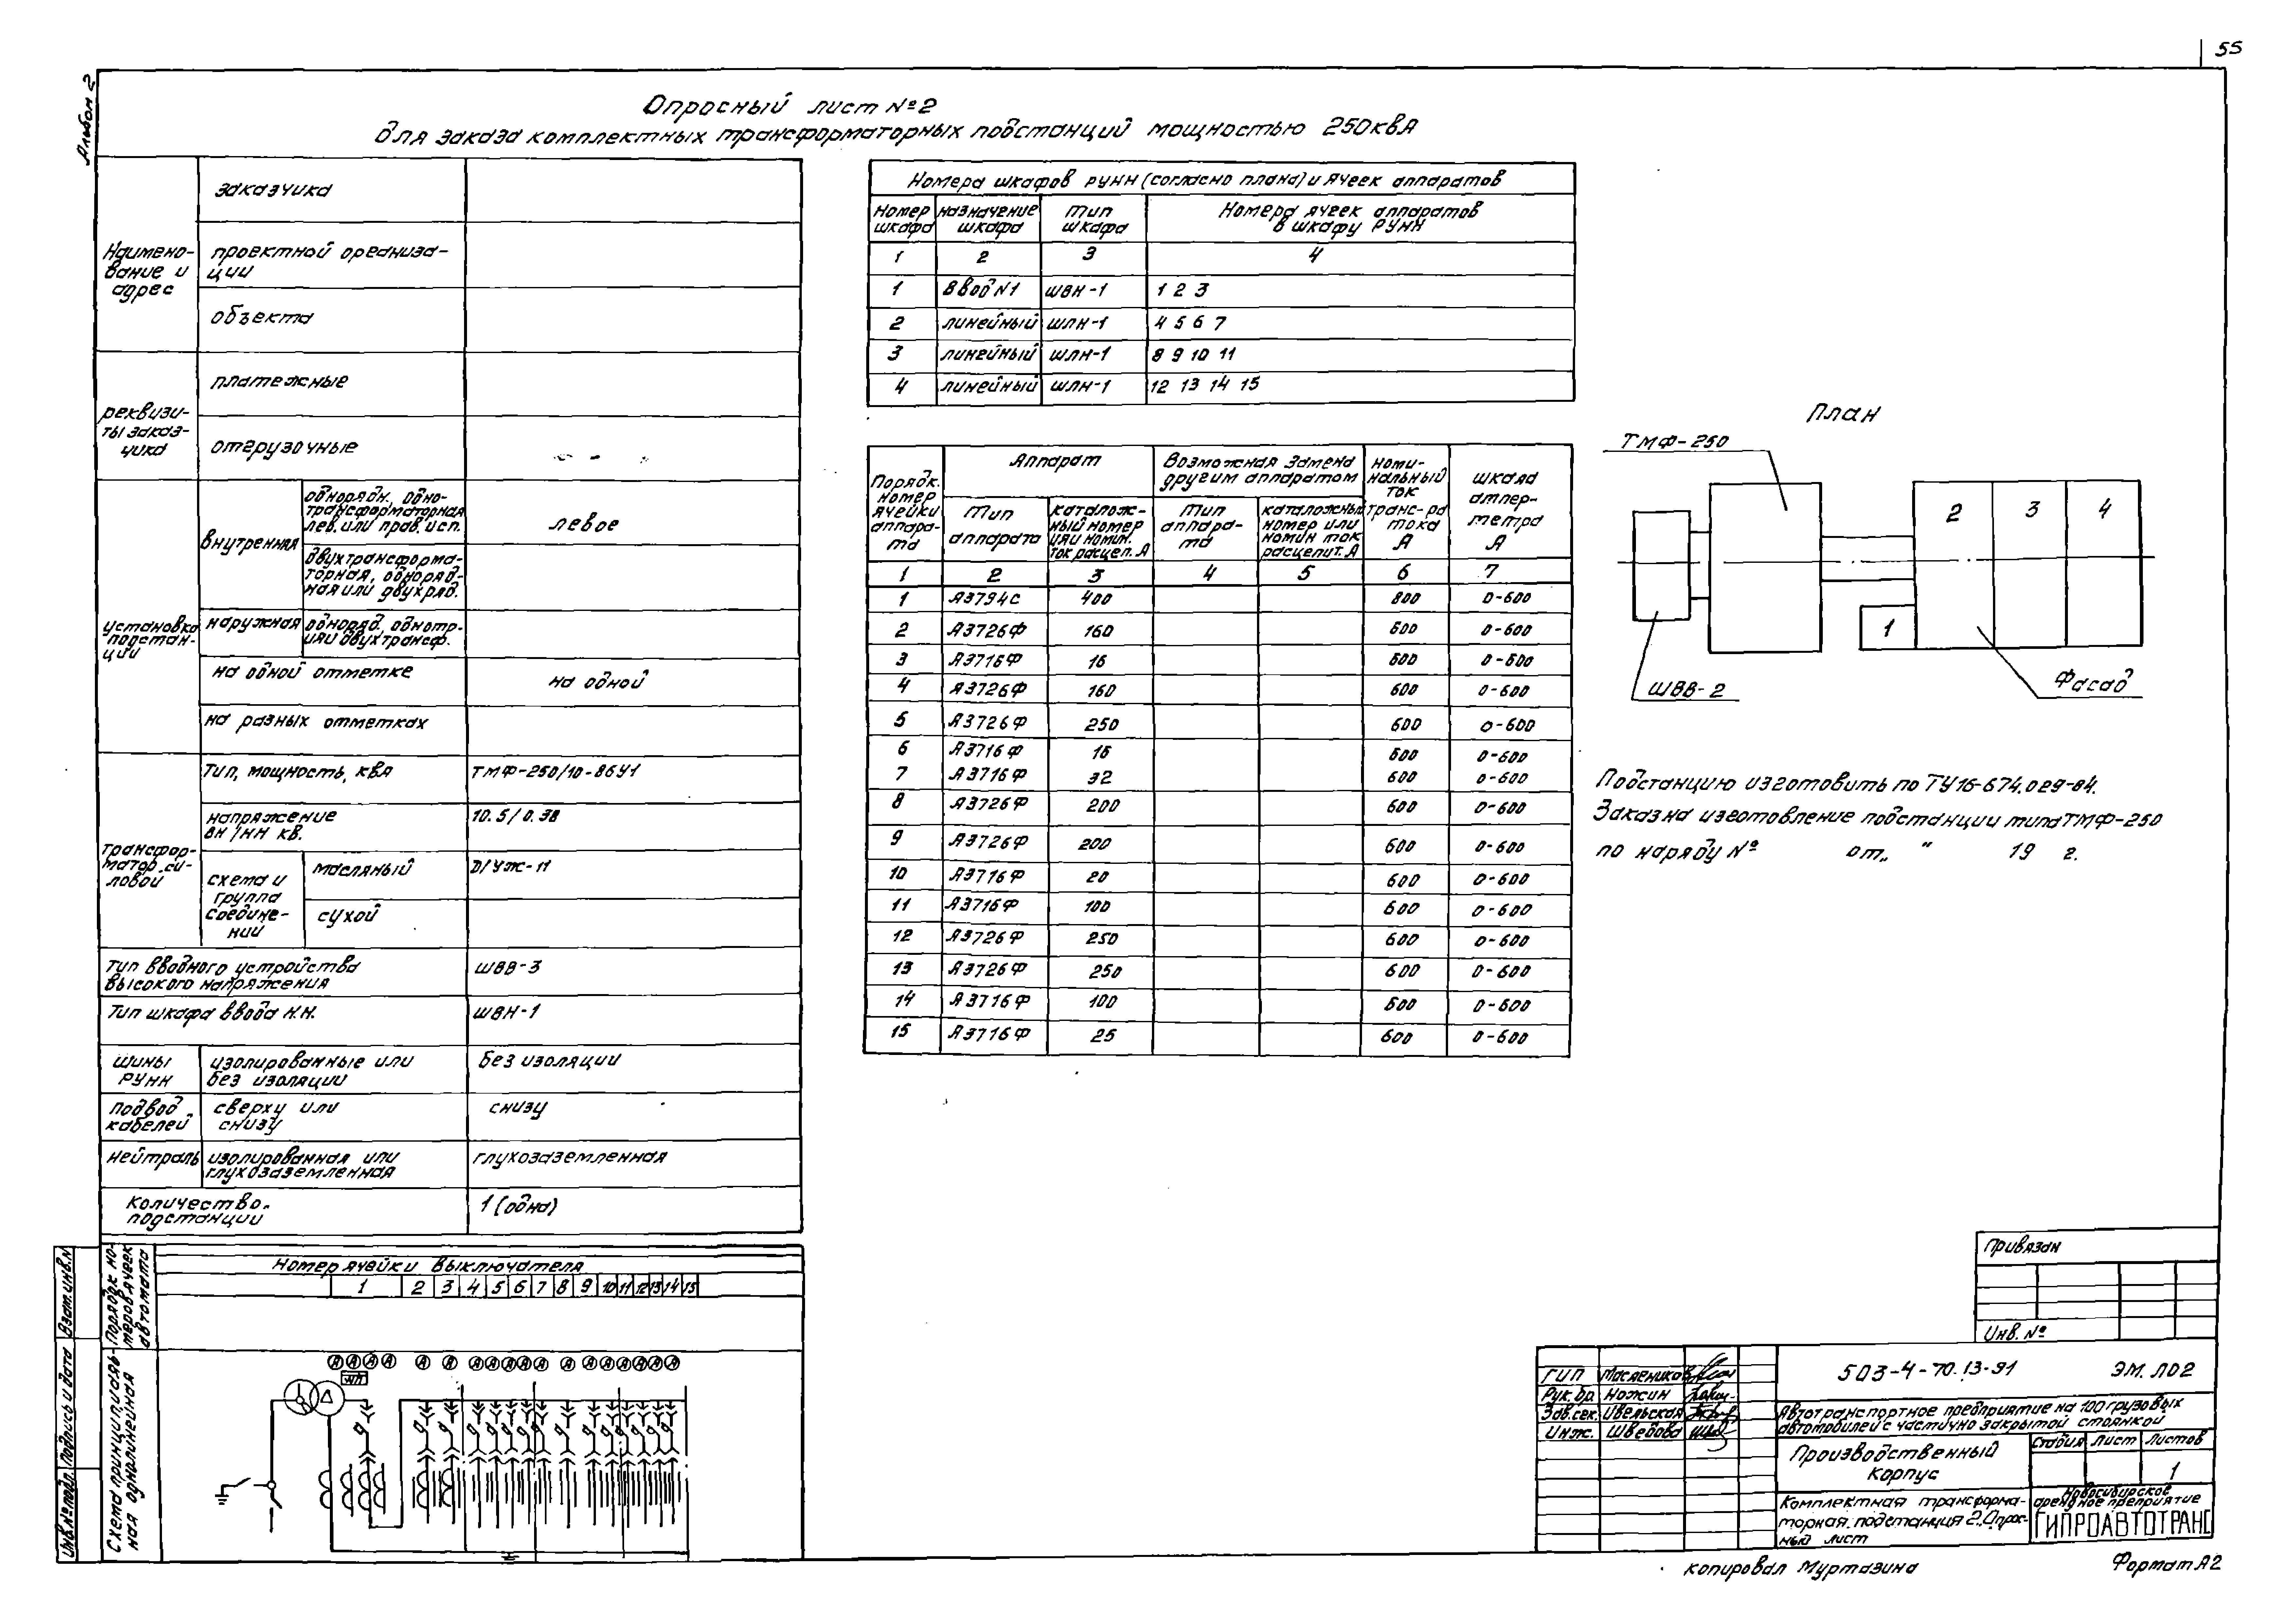 55
Альбом 2
Опросный лист №2
для заказа комплектных трансформаторных подстанций мощностью 250кВА
Наимено-
вание и
адрес
заказчика
проектной организа-
ции
объекта
реквизи-
ты заказ-
чика
платежные
отгрузочные
установка
подстан-
ции
внутренняя
однорядн. одно-
трансформаторная
лев. или прав. исп.
левое
двухтрансформа-
торная, одноряд-
ная или двухряд.
наружная
одноряд. однотр-
или двухтрансф.
на одной отметке
на одной
на разных отметках
трансфор-
матор си-
ловой
Тип, мощность, кВА
ТМФ-250/10-86У1
напряжение
ВН/НН кВ.
10.5/0.38
схема и
группа
соедине-
ний
масляный
D/Ун-11
сухой
Тип вводного устройства
высокого напряжения
ШВВ-3
Тип шкафа ввода Н.Н.
ШВН-1
шины
РУНН
изолированные или
без изоляции
без изоляции
подвод
кабелей
сверху или
снизу
снизу
нейтраль
изолированная или
глухозаземленная
глухозаземленная
Количество
подстанции
1 (одна)
Порядок но-
меров ячеек
автомата
Номер ячейки выключателя
1 2 3 4 5 6 7 8 9 10 11 12 13 14 15
Схема принципиаль-
ная однолинейная
Номера шкафов РУНН (согласно плана) и ячеек аппаратов
Номер
шкафа
назначение
шкафа
тип
шкафа
Номера ячеек аппаратов
в шкафу РУНН
1 2 3 4
1 Ввод N1 ШВН-1 1 2 3
2 линейный ШЛН-1 4 5 6 7
3 линейный ШЛН-1 8 9 10 11
4 линейный ШЛН-1 12 13 14 15
Порядк.
номер
ячейки
аппара-
та
Аппарат
Возможная замена
другим аппаратом
Номи-
нальный
ток
транс-ра
тока
А
шкала
ампер-
метра
А
Тип
аппарата
каталож-
ный номер
или номин.
ток расцеп. А
Тип
аппара-
та
каталожный
номер или
номин ток
расцепит. А
1 2 3 4 5 6 7
1 А3794С 400 800 0-600
2 А3726Ф 160 600 0-600
3 А3716Ф 16 600 0-600
4 А3726Ф 160 600 0-600
5 А3726Ф 250 600 0-600
6 А3716Ф 16 600 0-600
7 А3716Ф 32 600 0-600
8 А3726Ф 200 600 0-600
9 А3726Ф 200 600 0-600
10 А3716Ф 20 600 0-600
11 А3716Ф 100 600 0-600
12 А3726Ф 250 600 0-600
13 А3726Ф 250 600 0-600
14 А3716Ф 100 600 0-600
15 А3716Ф 25 600 0-600
План
ТМФ-250
2 3 4
1
ШВВ-2
Фасад
Подстанцию изготовить по ТУ16-674.029-84.
Заказ на изготовление подстанции типа ТМФ-250
по наряду № от „ “ 19 г.
Привязан
Инв. №
ГИП Маслеников
Рук. бр. Ножин
Зав. сек. Ивельская
Инж. Шведова
503-4-70.13-91 ЭМ.ЛО2
Автотранспортное предприятие на 100 грузовых
автомобилей с частично закрытой стоянкой
Производственный
корпус
Стадия Лист Листов
1
Комплектная трансформа-
торная подстанция 2. Опрос-
ный лист
Новосибирское
арендное предприятие
ГИПРОАВТОТРАНС
Взам. инв. N
Подпись и дата
Инв. № подл.
копировал Муртазина
Формат А2